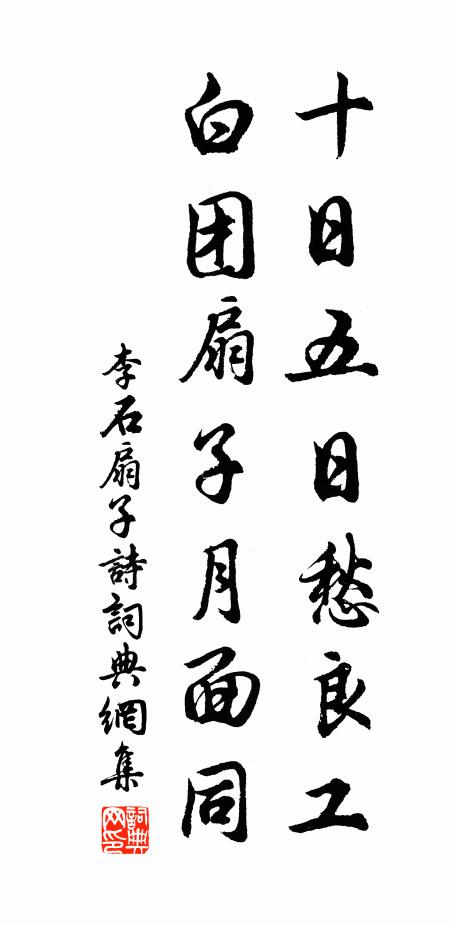 十日五日愁良工
白团扇子月面同
李石扇子詩詞典網集
詞典网印